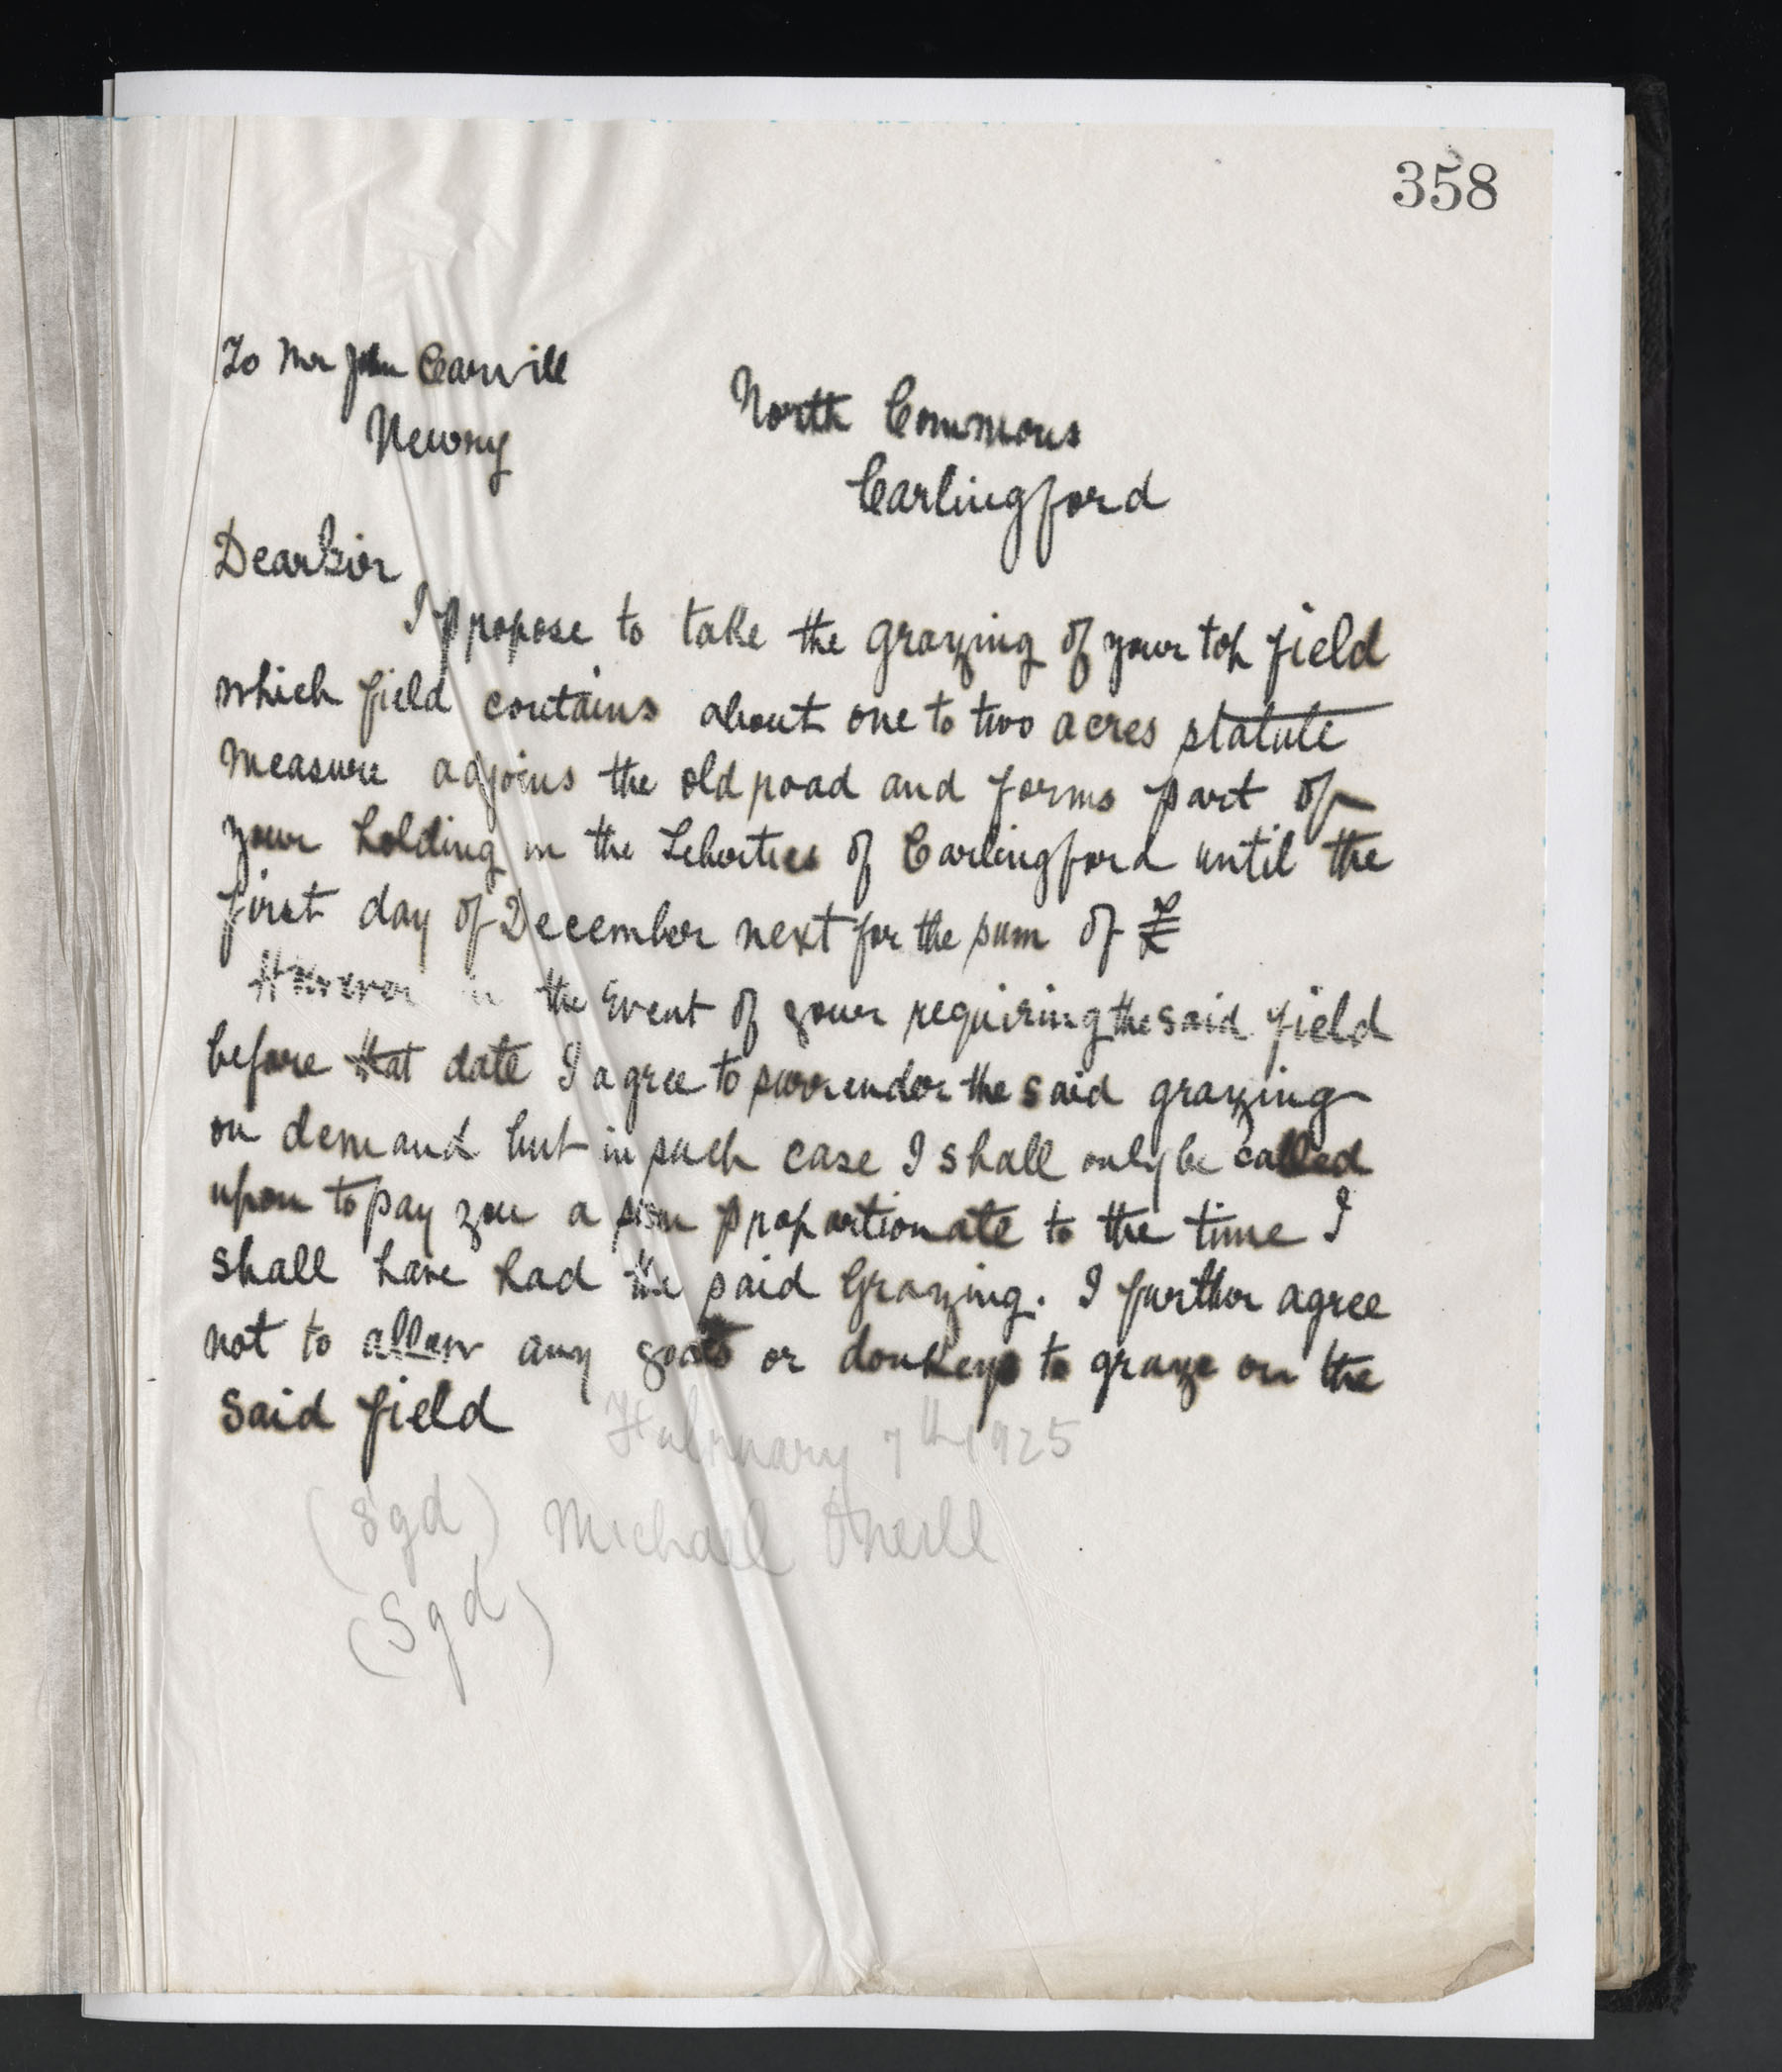 358
To Mr John Carvill
Newry
North Commons
Carlingford
Dear Sir
I propose to take the grazing of your top field
which field contains about one to two acres statute
measure adjoins the old road and forms part of
your holding in the Liberties of Carlingford until the
first day of December next for the sum of £
However in the Event of your requiring the said field
before that date I agree to surrender the said grazing
on demand but in such case I shall only be called
upon to pay you a sum proportionate to the time I
shall have had the said Grazing. I further agree
not to allow any goats or donkeys to graze on the
said field
February 7th 1925
(Sgd) Michael Oneill
(Sgd)